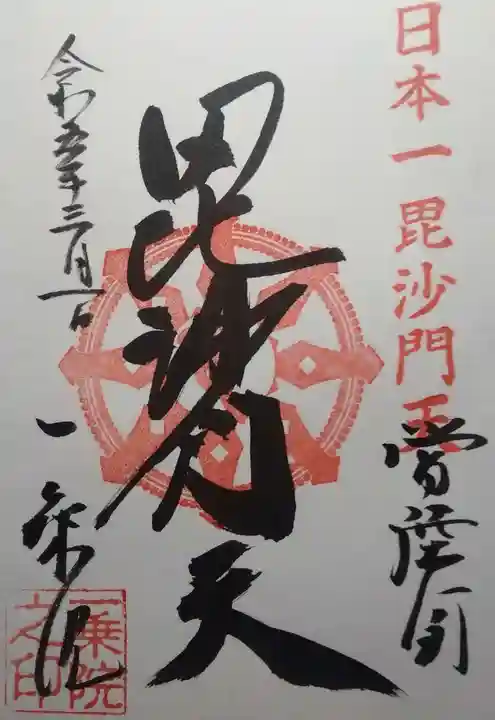 日本一毘沙門天
霄薩摩
毘沙門天
令和五年三月一日
一乗院
一乗院之印